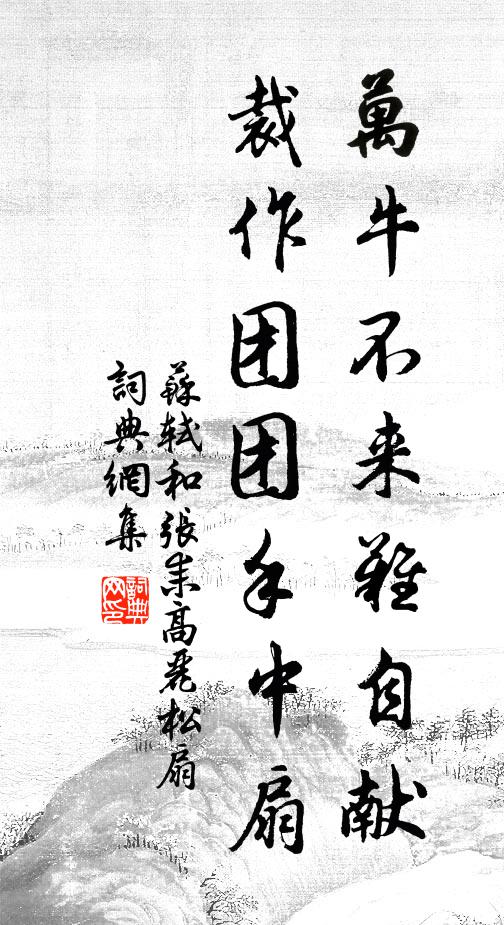 萬牛不来難自献
裁作团团手中扇
蘇軾和張耒高麗松扇
詞典網集
詞典网印